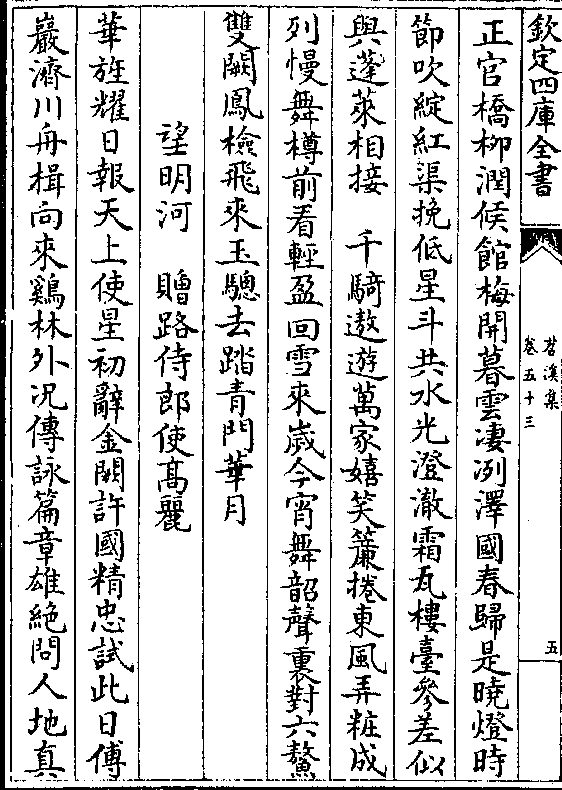 欽定四庫全書
苕溪集
卷五十三
五
正官橋柳潤候館梅開暮雲凄冽澤國春歸是曉燈時
節吹綻紅渠挽低星斗共水光澄澈霜瓦樓臺參差似
與蓬萊相接　千騎遨遊萬家嬉笑簾捲東風弄粧成
列慢舞樽前看輕盈回雪來歲今宵舞韶聲裏對六鰲
雙闕鳳檢飛來玉驄去踏青門華月
望明河　贈路侍郎使高麗
華旌耀日報天上使星初辭金闕許國精忠試此日傅
巖濟川舟楫向來鷄林外况傳詠篇章雄絶問人地真